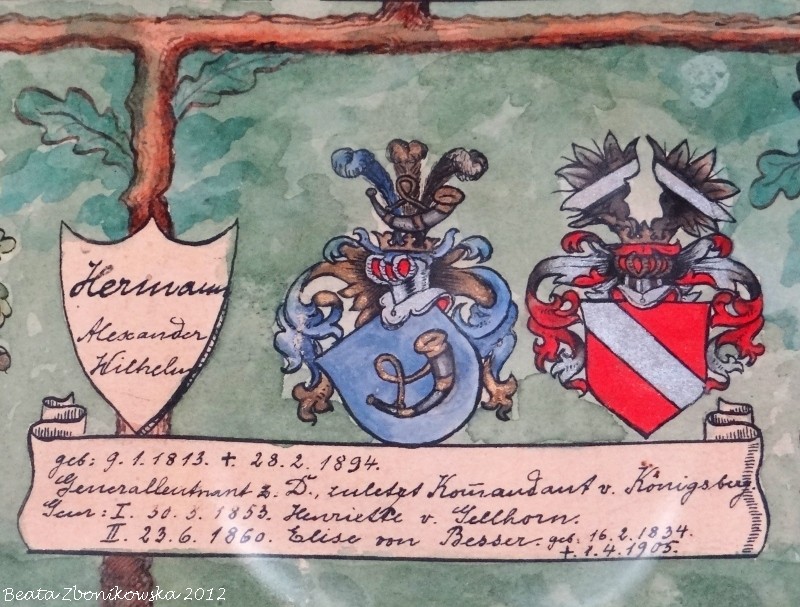 Hermann
Alexander
Wilhelm
geb: 9.1.1813. + 28.2.1894.
Generalleutnant z. D., zuletzt Kom̄andant v. Königsberg.
Gem: I. 30.5.1853. Henriette v. Gellhorn.
II. 23.6.1860. Elise von Besser. geb: 16.2.1834.
+ 1.4.1905.
Beata Zbonikowska 2012